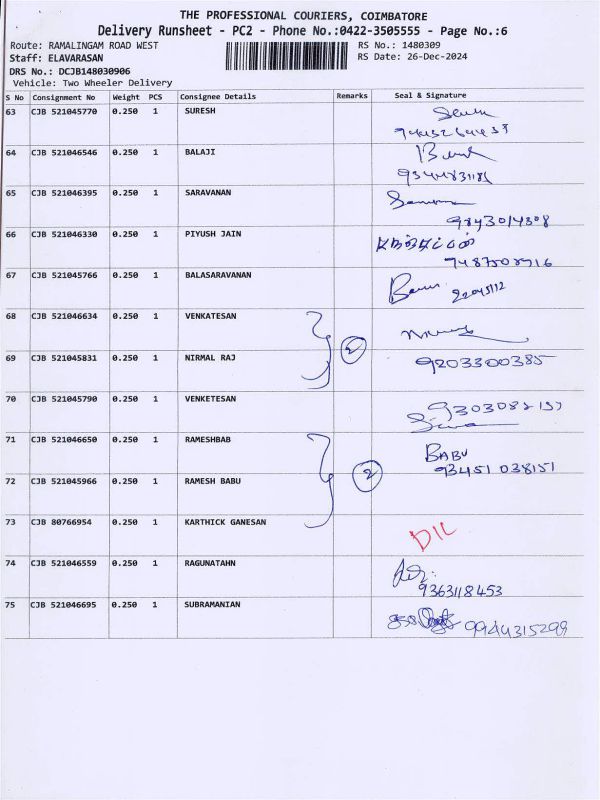 THE PROFESSIONAL COURIERS, COIMBATORE
Delivery Runsheet - PC2 - Phone No.:0422-3505555 - Page No.:6
Route: RAMALINGAM ROAD WEST RS No.: 1480309
Staff: ELAVARASAN RS Date: 26-Dec-2024
DRS No.: DCJB148030906
Vehicle: Two Wheeler Delivery
S No Consignment No Weight PCS Consignee Details Remarks Seal & Signature
63 CJB 521045770 0.250 1 SURESH
64 CJB 521046546 0.250 1 BALAJI
65 CJB 521046395 0.250 1 SARAVANAN
9843014308
66 CJB 521046330 0.250 1 PIYUSH JAIN
67 CJB 521045766 0.250 1 BALASARAVANAN
68 CJB 521046634 0.250 1 VENKATESAN
69 CJB 521045831 0.250 1 NIRMAL RAJ 9203300385
70 CJB 521045790 0.250 1 VENKETESAN
71 CJB 521046650 0.250 1 RAMESHBAB BABU
2 93451 038151
72 CJB 521045966 0.250 1 RAMESH BABU
73 CJB 80766954 0.250 1 KARTHICK GANESAN
DIL
74 CJB 521046559 0.250 1 RAGUNATAHN
9363118453
75 CJB 521046695 0.250 1 SUBRAMANIAN
9944315299